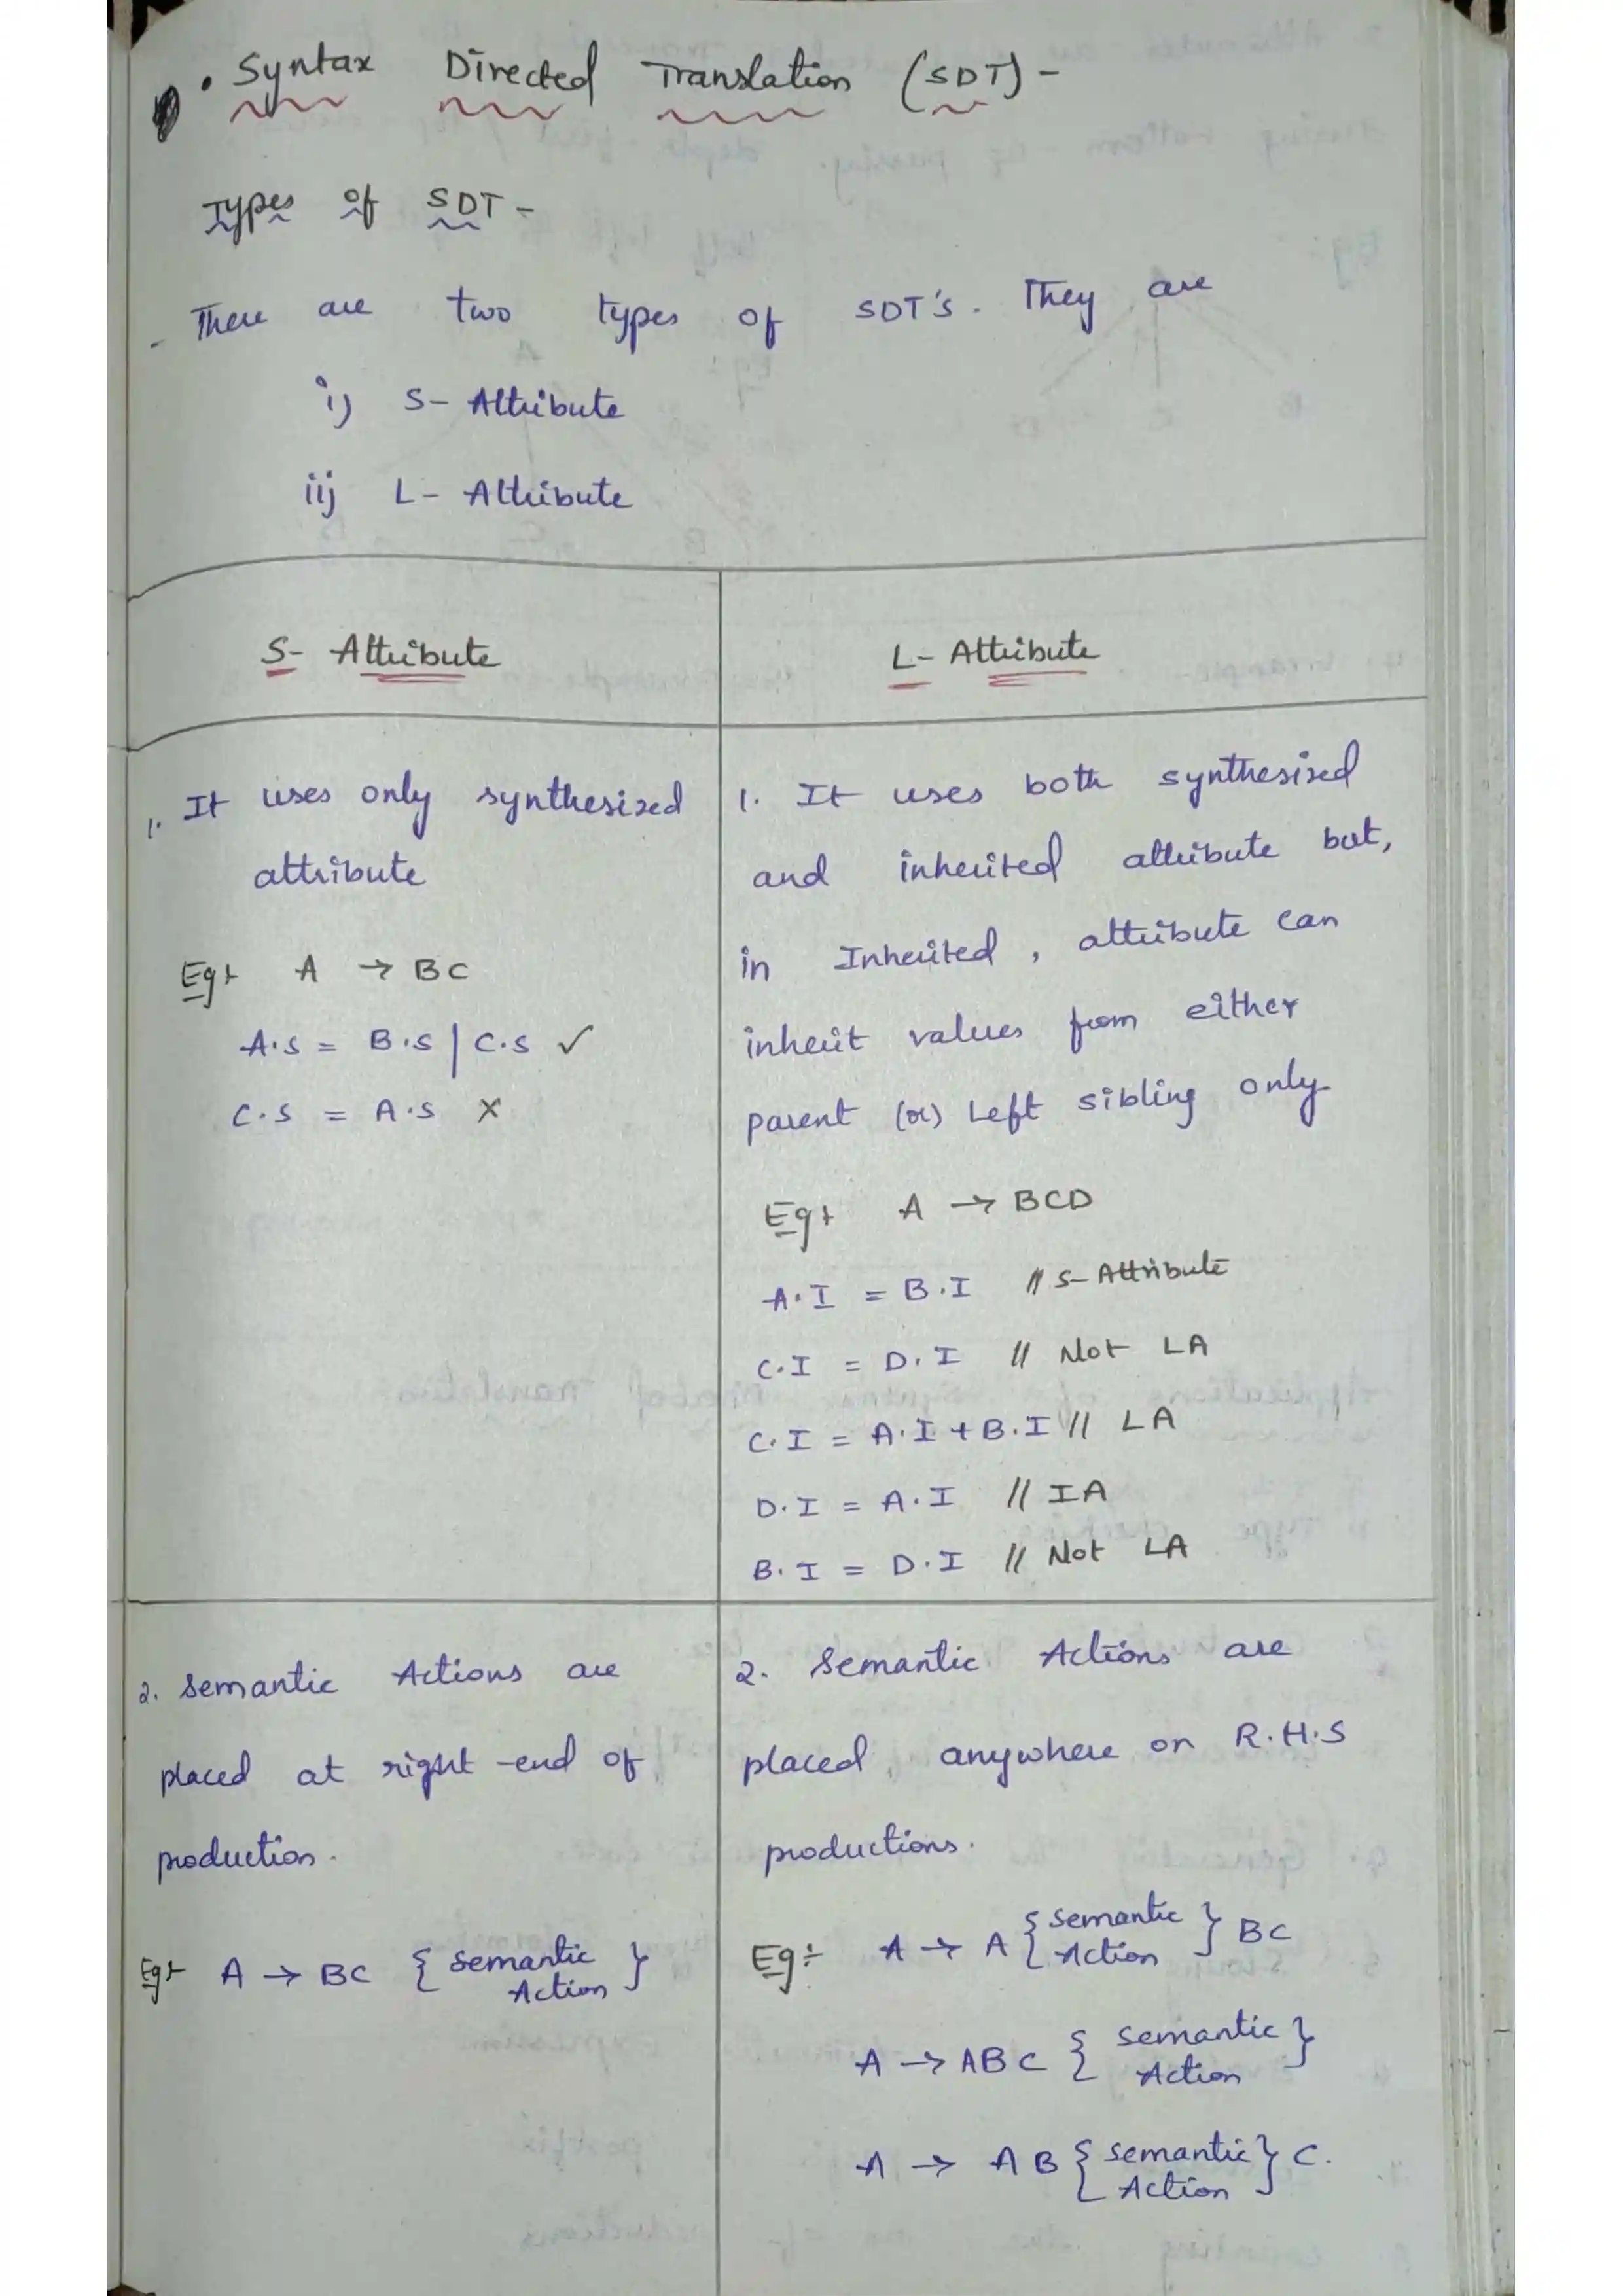 • Syntax Directed Translation (SDT) -
Types of SDT -
- There are two types of SDT's. They are
i) S- Attribute
ii) L- Attribute
S- Attribute
1. It uses only synthesized
attribute
Eg:- A → BC
A.S = B.S | C.S ✓
C.S = A.S X
2. Semantic Actions are
placed at right-end of
production.
Eg:- A → BC { Semantic
Action }
L- Attribute
1. It uses both synthesized
and inherited attribute but,
in Inherited, attribute can
inherit values from either
parent (or) Left sibling only
Eg:- A → BCD
A.I = B.I // S-Attribute
C.I = D.I // Not LA
C.I = A.I + B.I // LA
D.I = A.I // IA
B.I = D.I // Not LA
2. Semantic Actions are
placed anywhere on R.H.S
productions.
Eg:- A → A { Semantic
Action } BC
A → ABC { Semantic
Action }
A → AB { Semantic
Action } C.